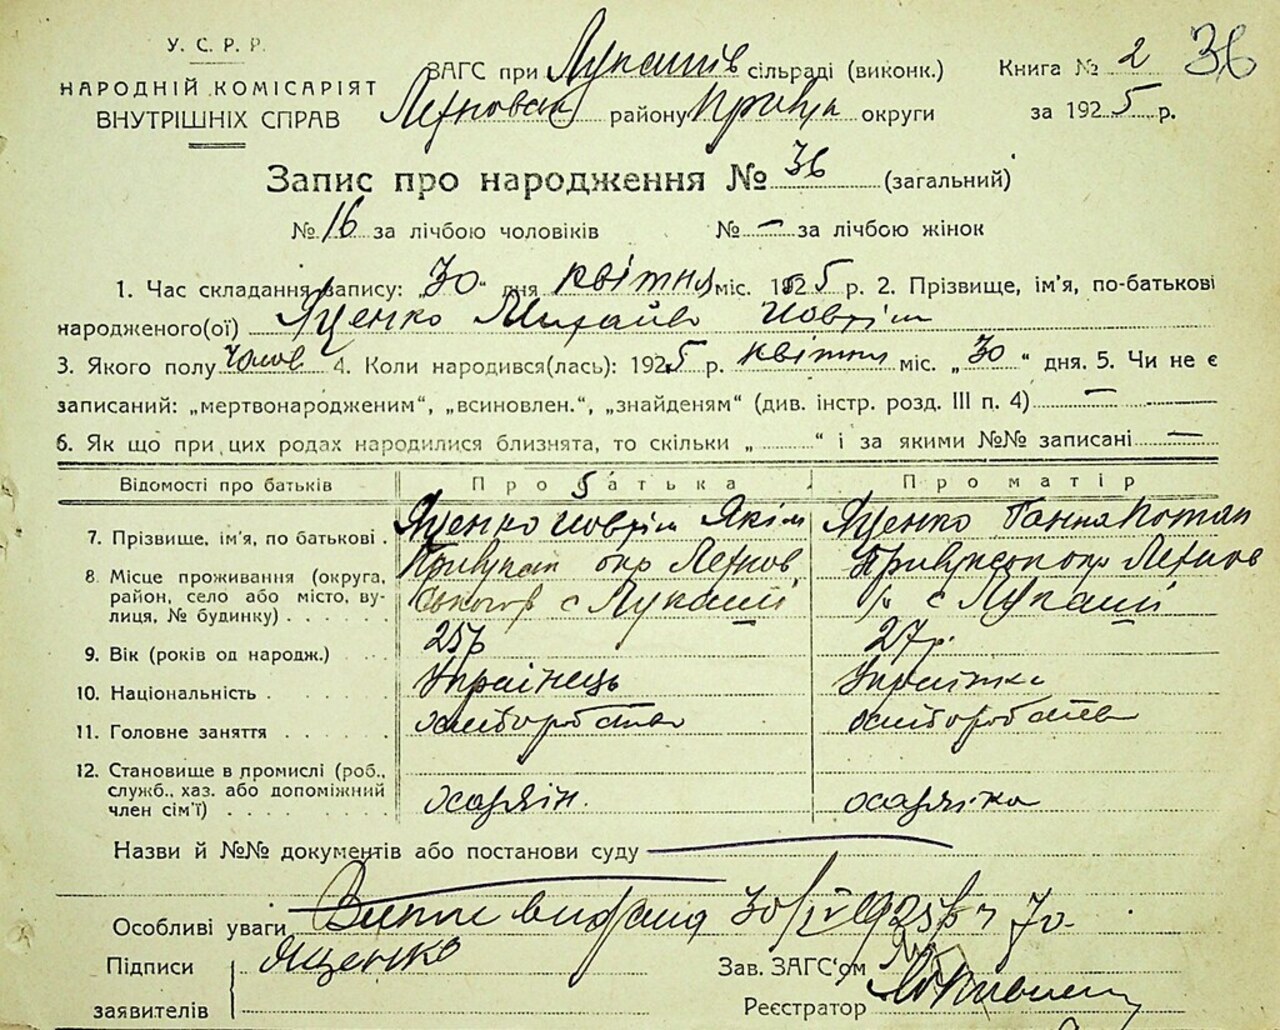 У. С. Р. Р.
НАРОДНІЙ КОМІСАРІЯТ
ВНУТРІШНІХ СПРАВ
ЗАГС при Лукашів сільраді (виконк.)
району округи
Книга № 2 36
за 1925 р.
Запис про народження № 36 (загальний)
№ 16 за лічбою чоловіків № — за лічбою жінок
1. Час складання запису: „30" дня квітня міс. 1925 р. 2. Прізвище, ім'я, по-батькові
народженого(ої) Яценко Михайло
3. Якого полу Чолов 4. Коли народився(лась): 1925 р. квітня міс. „30" дня. 5. Чи не є
записаний: „мертвонародженим", „всиновлен.", „знайденям" (див. інстр. розд. III п. 4) —
6. Як що при цих родах народилися близнята, то скільки „ " і за якими №№ записані —
Відомості про батьків Про батька Про матір
7. Прізвище, ім'я, по батькові . Яценко Якім Яценко Ганна Потап
8. Місце проживання (округа, район, село або місто, вулиця, № будинку) . . . . . . окр с с
9. Вік (років од народж.) 25р 27р.
10. Національність . Українець Українка
11. Головне заняття . . . . . . хліборобство хліборобство
12. Становище в промислі (роб., служб., хаз. або допоміжний член сім'ї) . . . . . . . . хазяїн. хазяїка
Назви й №№ документів або постанови суду —
Особливі уваги видана 30/IV 1925р
Підписи
заявителів
Яценко
Зав. ЗАГС'ом
Реєстратор